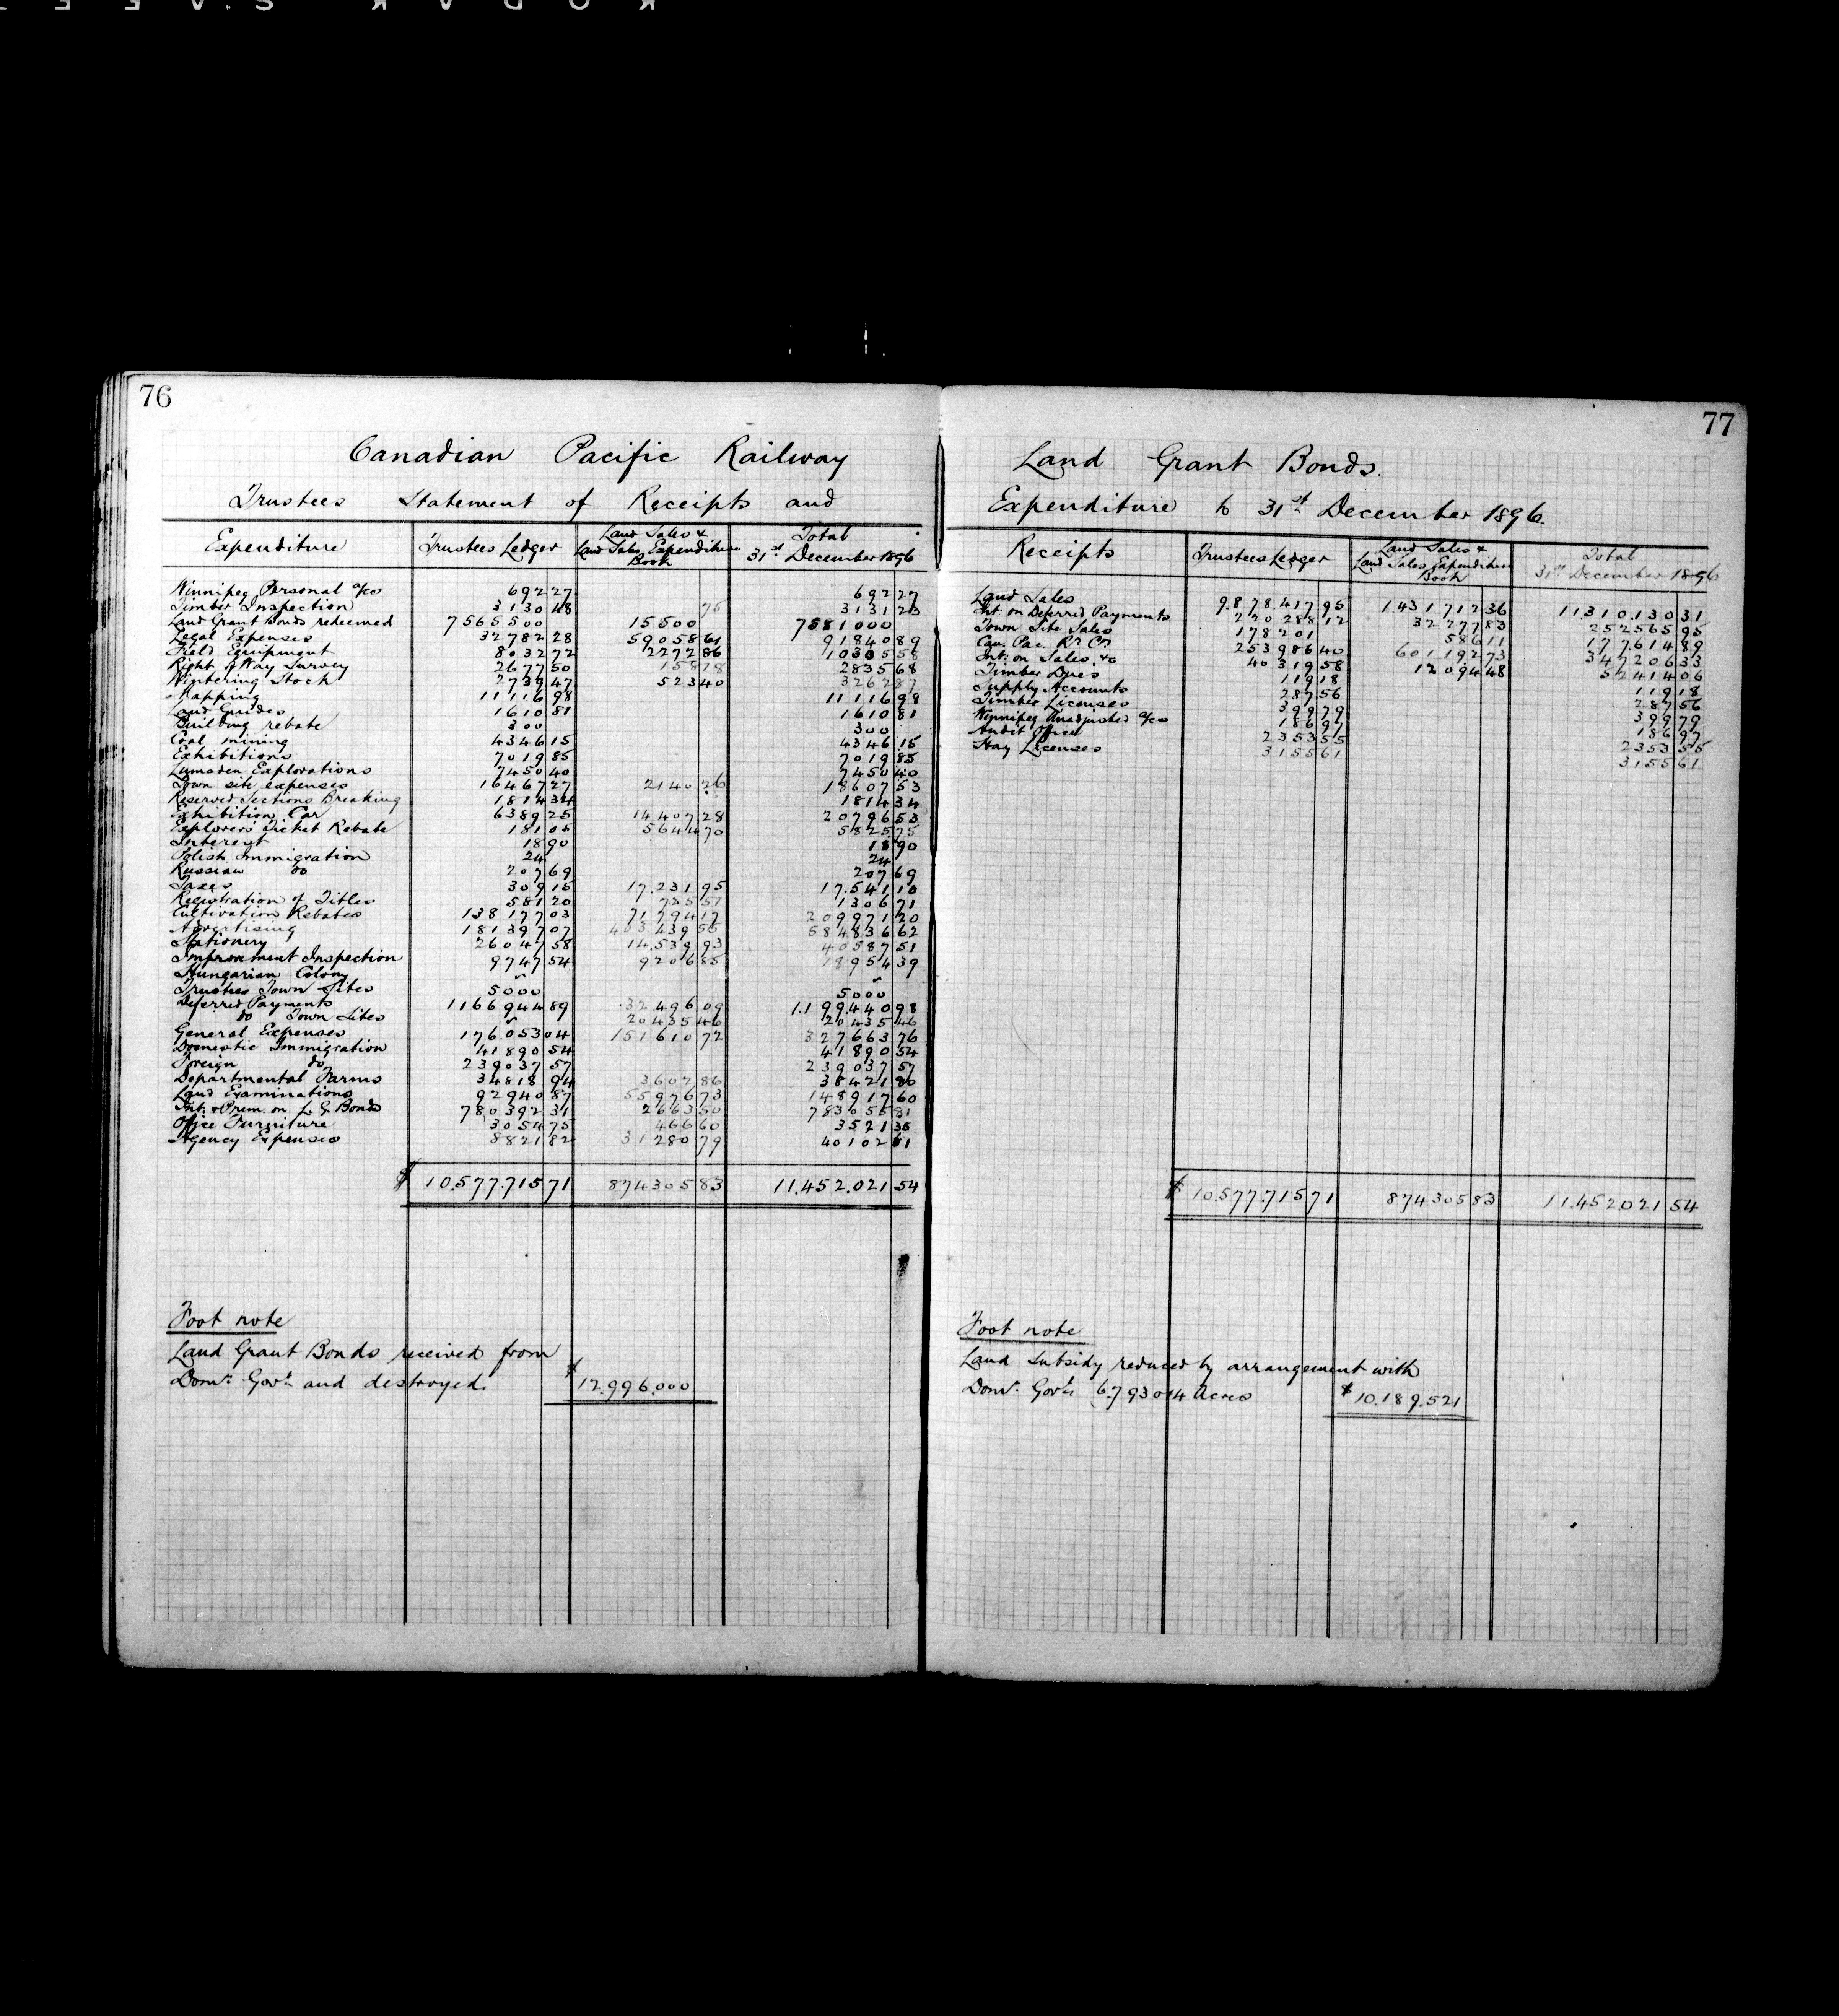 KODAK SAFE
76
Canadian Pacific Railway
Trustees Statement of Receipts and
Expenditure Trustees Ledger Land Sales & Land Sales Expenditure Book Total 31st December 1896
Winnipeg Personal a/co 692 27 692 27
Timber Inspection 3130 48 75 3131 23
Land Grant Bonds redeemed 7565500 15500 7581000
Legal Expenses 32782 28 59058 61 91840 89
Field Equipment 8032 72 2272 86 10305 58
Right of Way Survey 2677 50 158 18 2835 68
Wintering Stock 2739 47 523 40 3262 87
Mapping 11116 98 11116 98
Land Guides 1610 81 1610 81
Building rebate 300 300
Coal mining 4346 15 4346 15
Exhibitions 7019 85 7019 85
Lumsden Explorations 7450 40 7450 40
Town site expenses 16467 27 2140 26 18607 53
Reserved Sections Breaking 1814 34 1814 34
Exhibition Car 6389 25 14407 28 20796 53
Explorers' Ticket Rebate 181 05 5644 70 5825 75
Interest 18 90 18 90
Polish Immigration 24 24
Russian do 207 69 207 69
Taxes 309 15 17.231 95 17.541 10
Registration of Titles 581 20 725 51 1306 71
Cultivation Rebates 138177 03 71794 17 209971 20
Advertising 181397 07 403439 55 584836 62
Stationery 26047 58 14.539 93 40587 51
Improvement Inspection 9747 54 9206 85 18954 39
Hungarian Colony
Trustees Town Sites 5000 5000
Deferred Payments 1166944 89 32496 09 1.199440 98
do Town Sites 20435 46 20435 46
General Expenses 176053 04 151610 72 327663 76
Domestic Immigration 41890 54 41890 54
Foreign do 239037 57 239037 57
Departmental Farms 34818 94 3602 86 38421 80
Land Examinations 92940 87 55976 73 148917 60
Int. & Prem. on L. G. Bonds 780392 31 2663 50 783055 81
Office Furniture 3054 75 466 60 3521 35
Agency Expenses 8821 82 31280 79 40102 61
$ 10.577.715 71 874305 83 11.452.021 54
Foot note
Land Grant Bonds received from
Domn. Govt. and destroyed. $ 12.996.000
77
Land Grant Bonds.
Expenditure to 31st December 1896.
Receipts Trustees Ledger Land Sales & Land Sales Expenditure Book Total 31st December 1896
Land Sales 9.878.417 95 1.431712 36 11310.130 31
Int. on Deferred Payments 220288 12 32277 83 252565 95
Town Site Sales 178201 586 11 177.614 89
Can. Pac. Ry Co 253986 40 601192 73 347206 33
Int. on Sales &c 40319 58 12094 48 52414 06
Timber Dues 119 18 119 18
Supply Accounts 287 56 287 56
Timber Licenses 399 79 399 79
Winnipeg Unadjusted a/co 186 97 186 97
Audit Office 2353 55 2353 55
Hay Licenses 3155 61 3155 61
$ 10.577.715 71 874305 83 11.452021 54
Foot note
Land Subsidy reduced by arrangement with
Domn. Govt. 6.793014 Acres $ 10.189.521